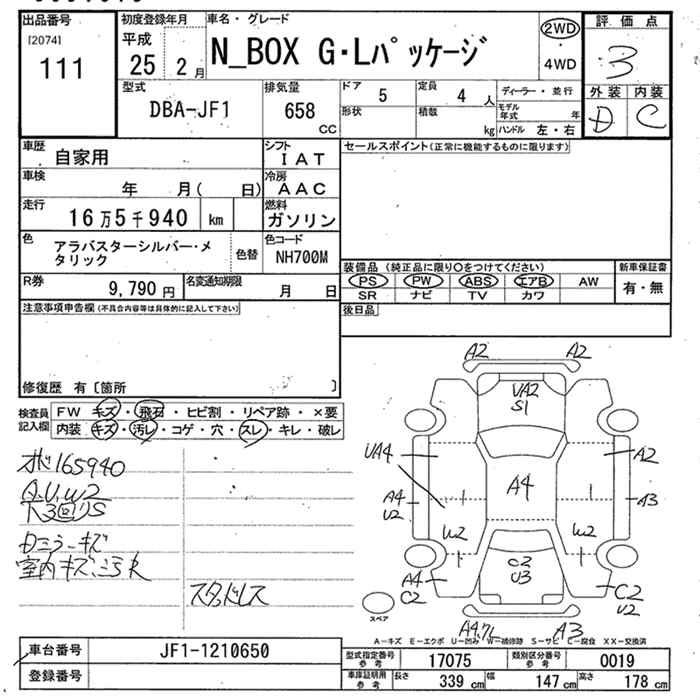 出品番号
[2074]
111
初度登録年月
平成
25 2月
車名・グレード
N_BOX G・Lパッケージ
2WD
4WD
評価点
3
外装 内装
D C
型式
DBA-JF1
排気量
658 CC
ドア 5
定員 4 人
ディーラー・並行
形状
積載 kg
モデル年式 年
ハンドル 左・右
車歴 自家用
シフト IAT
セールスポイント(正常に機能するものに限ります)
車検 年 月( 日)
冷房 AAC
走行 16万5千940 km
燃料 ガソリン
色 アラバスターシルバー・メタリック
色替
色コード NH700M
装備品 (純正品に限り○をつけてください)
新車保証書
PS PW ABS エアB AW
有・無
SR ナビ TV カワ
R券 9,790円
名変通知期限 月 日
後日品
注意事項申告欄(不具合内容等は具体的に記入して下さい)
修復歴 有〔箇所 〕
検査員記入欄
FW キズ・飛石・ヒビ割・リペア跡・×要
内装 キズ・汚レ・コゲ・穴・スレ・キレ・破レ
165940
A.U.W2
下3回りS
Dミラーキズ
室内キズ、汚れ
スタッドレス
A2 A2
UA2
S1
UA4
A2
A4
A4
U2
A3
W2 W2
C2
U3
A4
C2
C2
U2
A3
スペア
A-キズ E-エクボ U-凹み W-補修跡 S-サビ C-腐食 XX-交換済
車台番号 JF1-1210650
登録番号
型式指定番号 参考 17075
類別区分番号 参考 0019
車庫証明用 参考 長さ 339 cm 幅 147 cm 高さ 178 cm